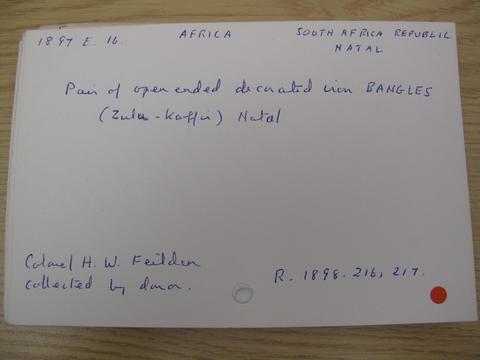 1897 E. 16. AFRICA SOUTH AFRICA REPUBLIC
NATAL
Pair of open ended decorated iron BANGLES
(Zulu - Kaffir) Natal
Colonel H. W. Feilden
collected by donor.
R. 1898. 216, 217.